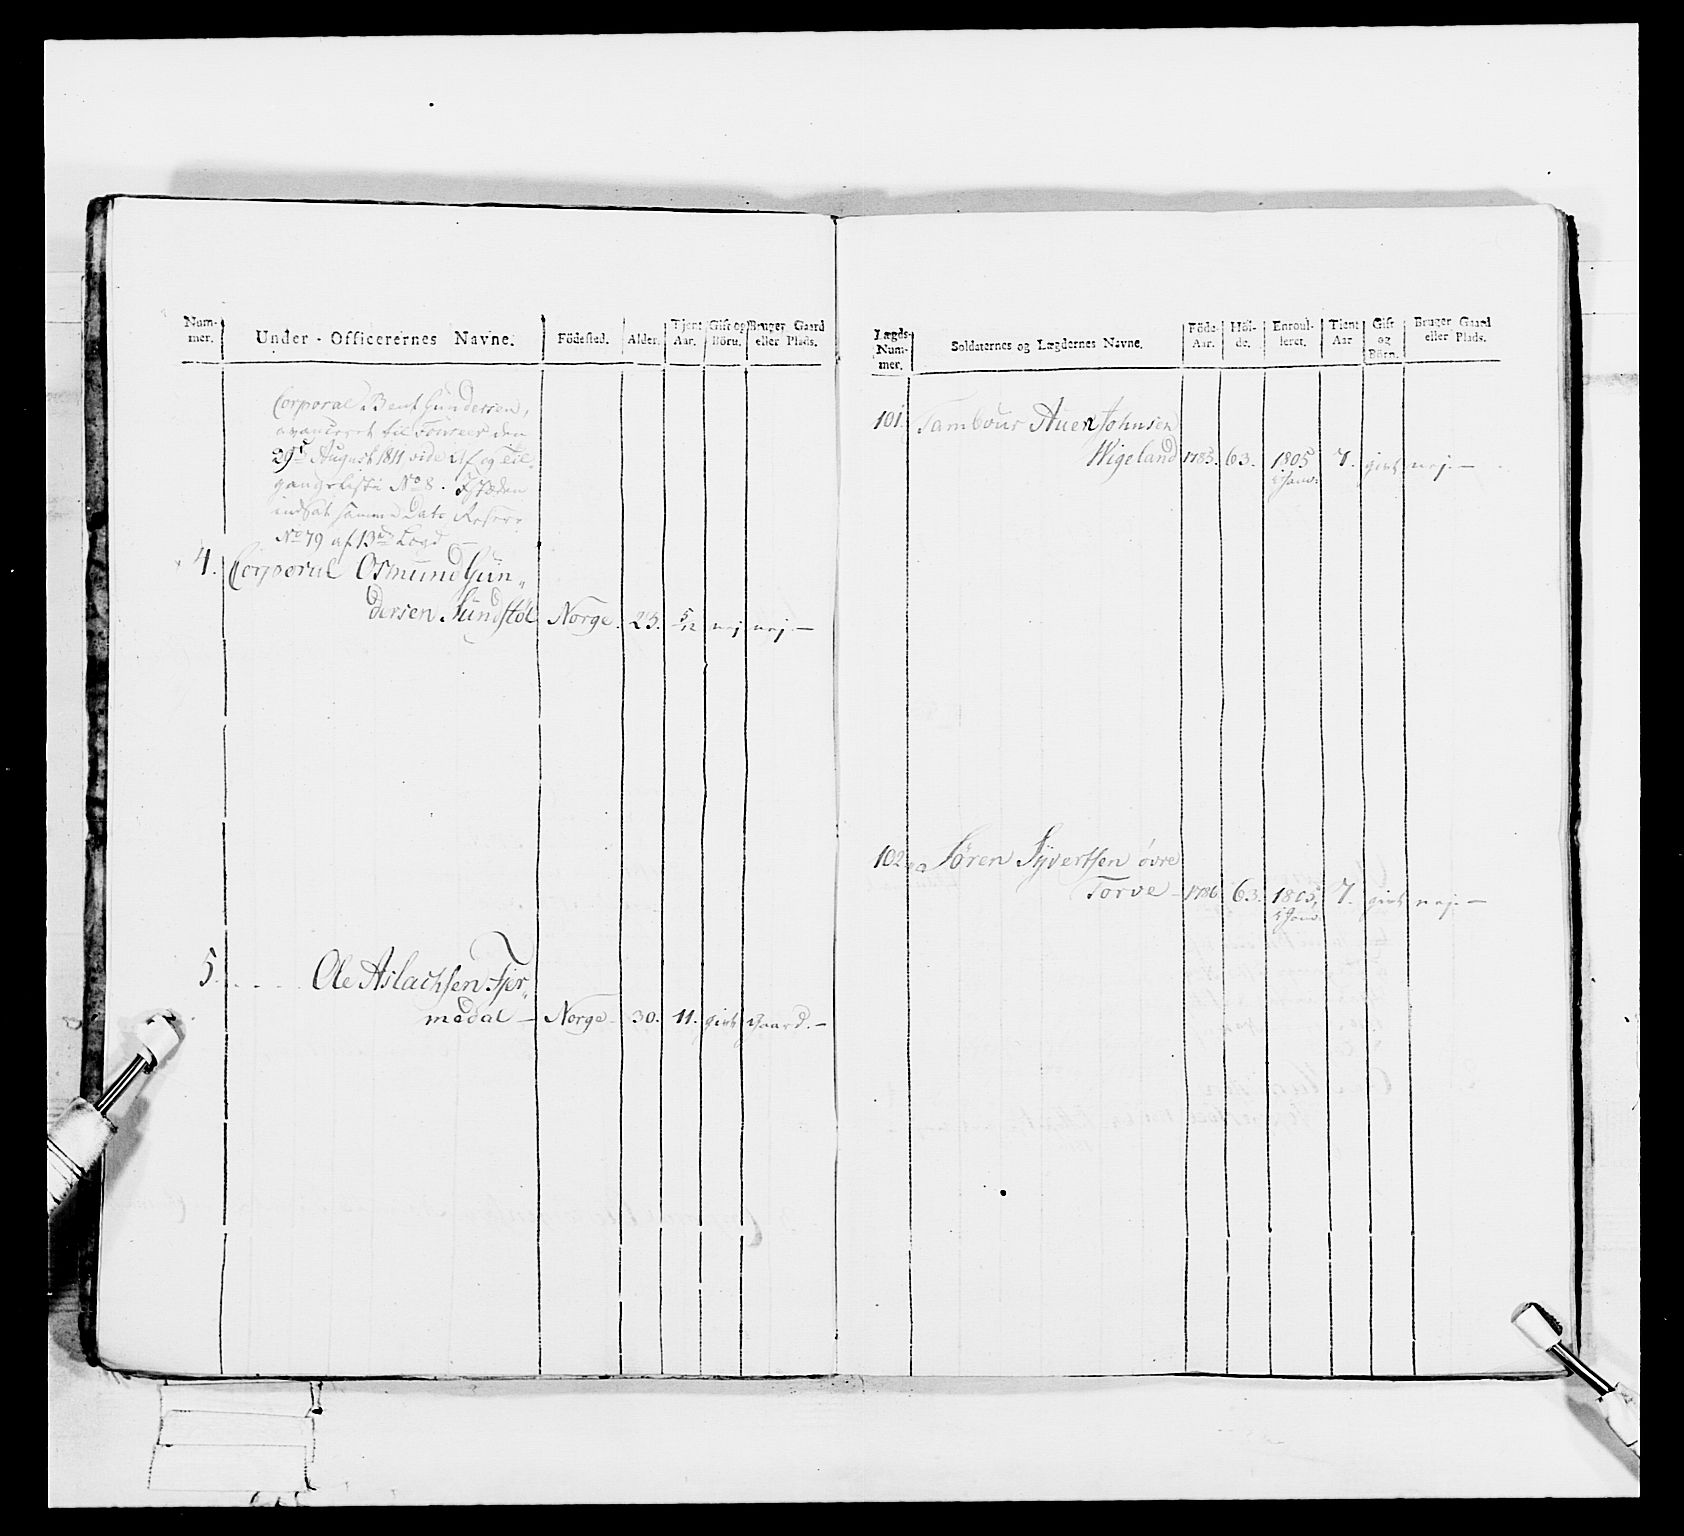 Num-
mer.
Under-Officerernes Navne.
Födested.
Alder.
Tjent
Aar.
Gift og
Börn.
Bruger Gaard
eller Plads.
Corporal Bent Gundersen,
avanceret til Foureer den
29de August 1811 vide Af og Til-
gangsliste No 8. Istæden
indsat samme Dato Reserv
No 79 af 13de Lægd —
4. Corporal Osmund Gun„
dersen Sundstöl Norge. 23. 5/12 nej nej. —
5. . . . . Ole Aslachsen Tjor„
medal — Norge 30. 11. givt Gaard. —
Lægds-
Num-
mer.
Soldaternes og Lægdernes Navne.
Föde-
Aar.
Höi-
de.
Enroul-
leret.
Tient
Aar
Gift
og
Börn.
Bruger Gaard
eller Plads.
101. Tambour Auen Johnsen
Wigeland 1785. 63. 1805 7. givt nej. —
5 Janv.
102 Sören Syvertsen övre
Torve — 1786 63. 1805, 7. givt nej. —
5 Janv.